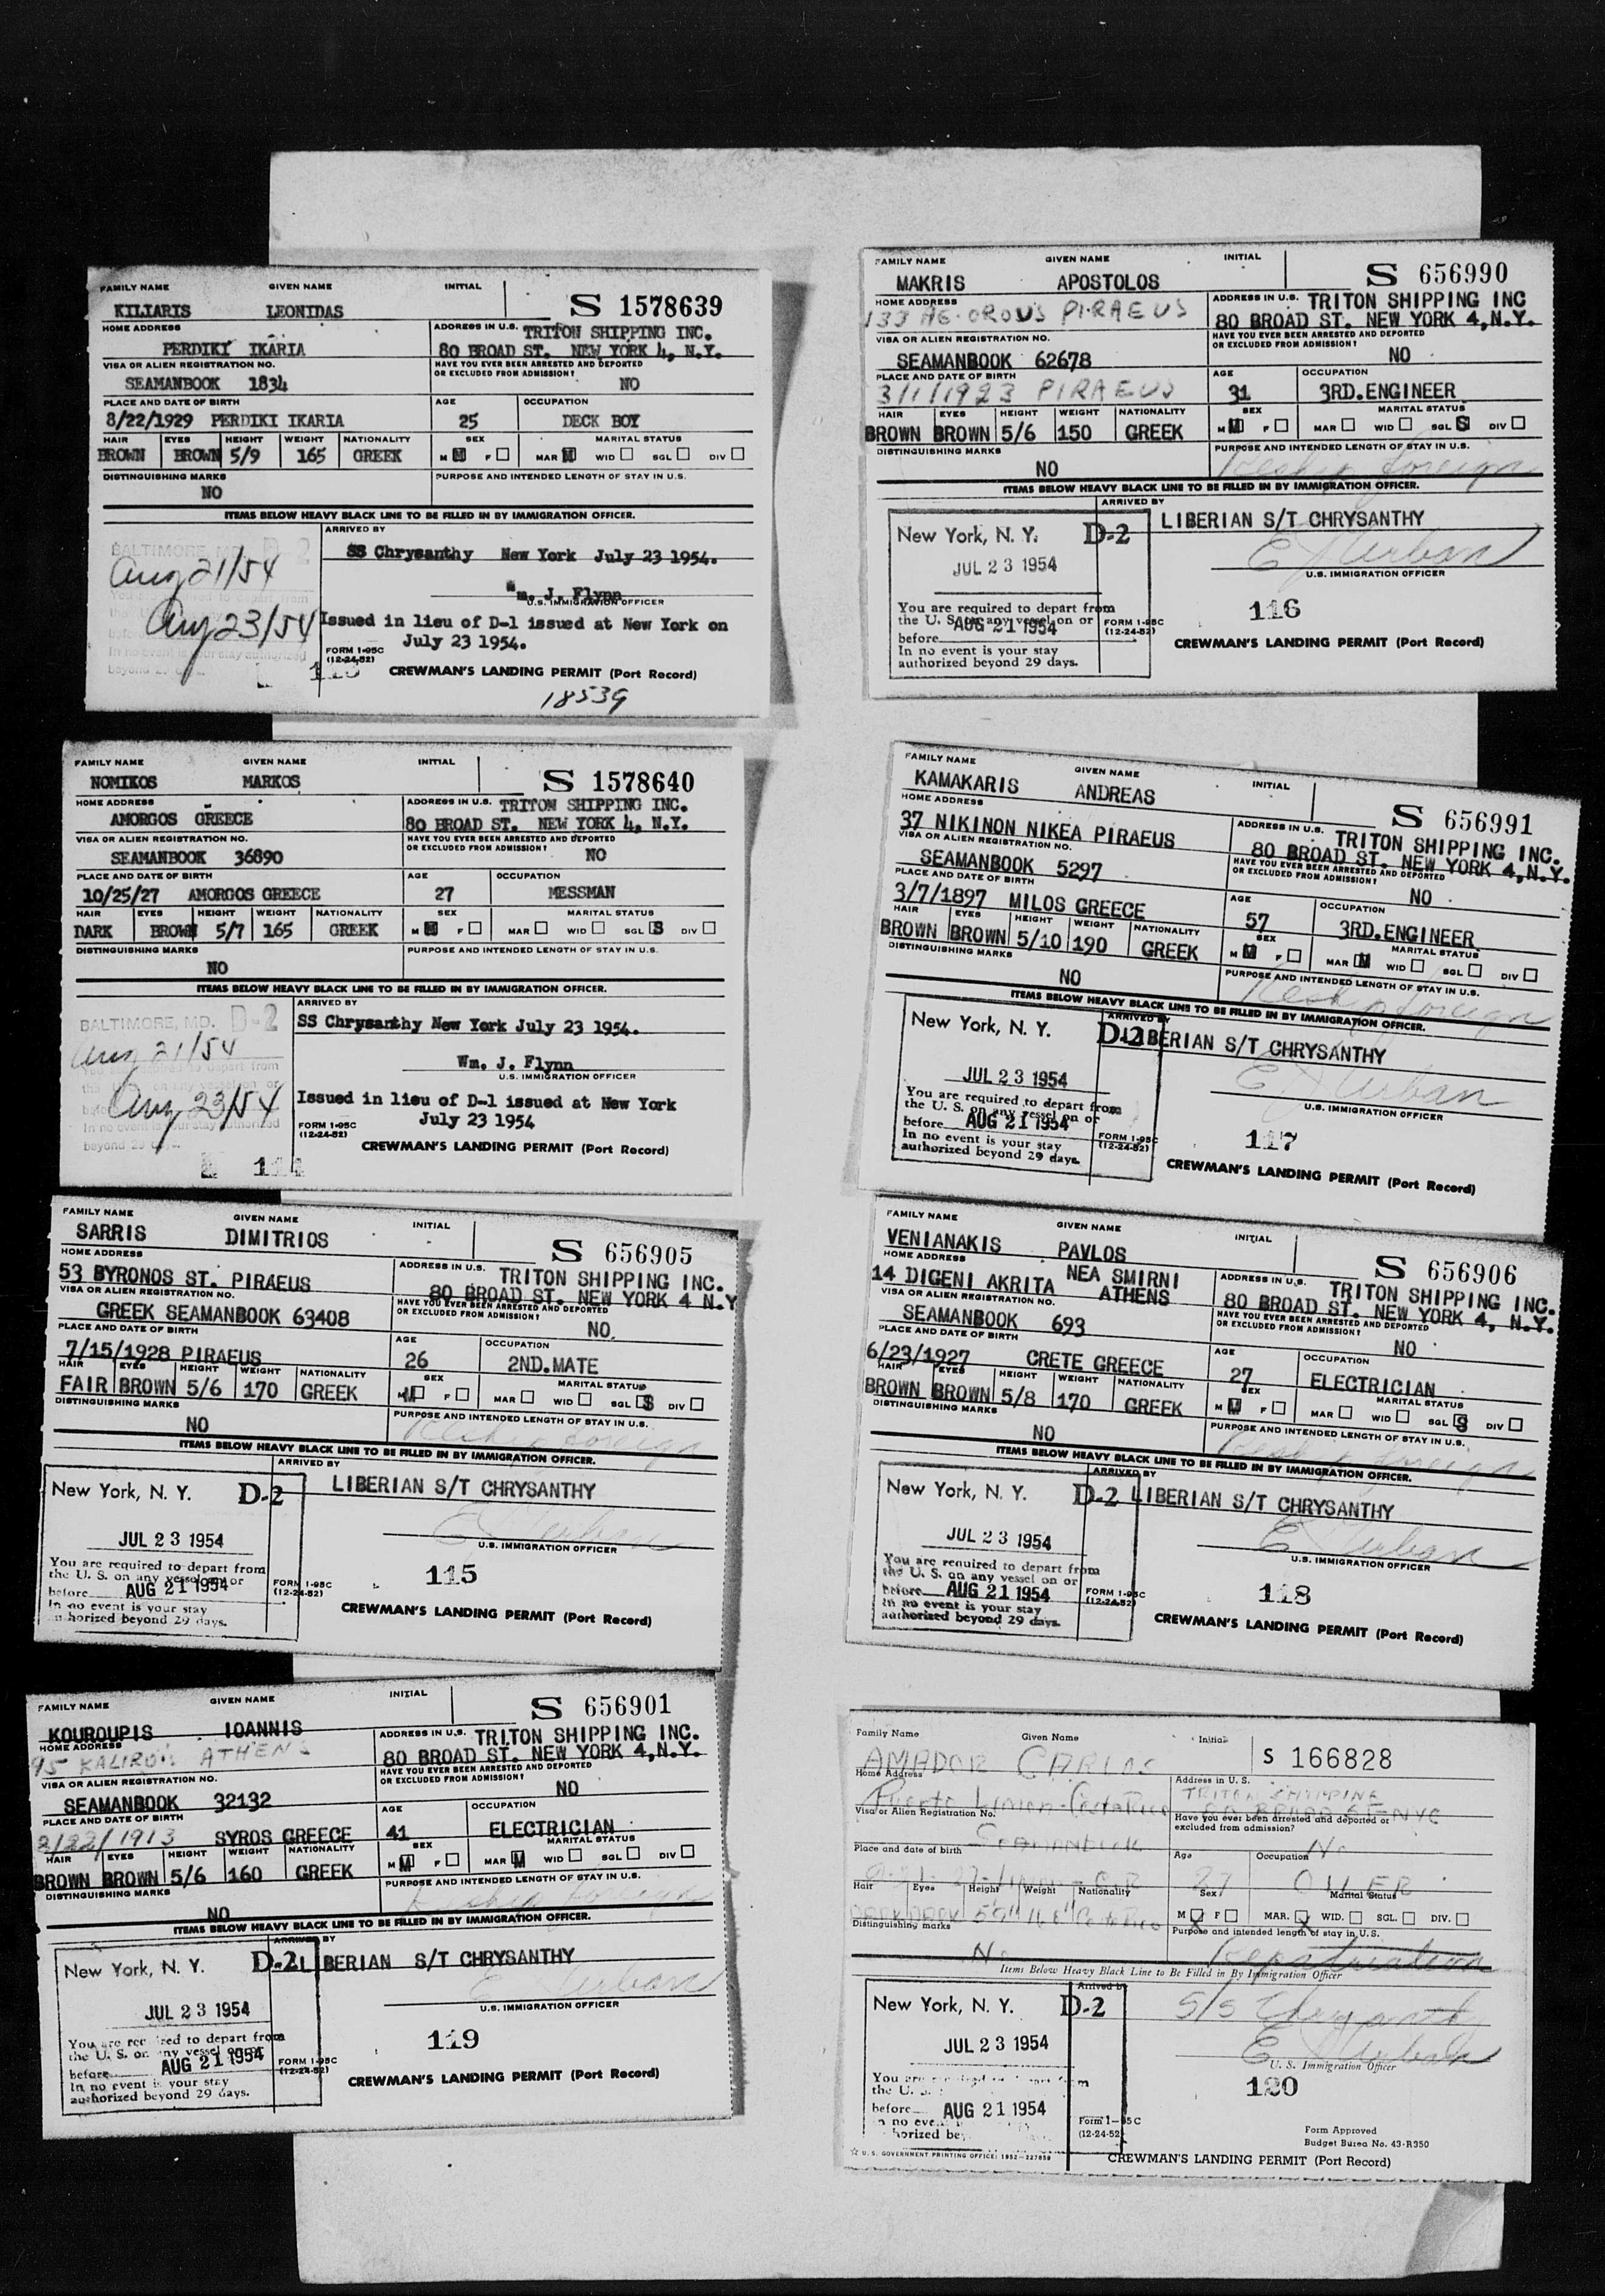 FAMILY NAME GIVEN NAME INITIAL
KILIARIS LEONIDAS S 1578639
HOME ADDRESS ADDRESS IN U.S. TRITON SHIPPING INC.
PERDIKI IKARIA 80 BROAD ST. NEW YORK 4, N.Y.
VISA OR ALIEN REGISTRATION NO. HAVE YOU EVER BEEN ARRESTED AND DEPORTED OR EXCLUDED FROM ADMISSION?
SEAMANBOOK 1834 NO
PLACE AND DATE OF BIRTH AGE OCCUPATION
8/22/1929 PERDIKI IKARIA 25 DECK BOY
HAIR EYES HEIGHT WEIGHT NATIONALITY SEX MARITAL STATUS
BROWN BROWN 5/9 165 GREEK M F MAR M WID SGL DIV
DISTINGUISHING MARKS PURPOSE AND INTENDED LENGTH OF STAY IN U.S.
NO
ITEMS BELOW HEAVY BLACK LINE TO BE FILLED IN BY IMMIGRATION OFFICER.
ARRIVED BY
BALTIMORE, MD. D-2
SS Chrysanthy New York July 23 1954.
Aug 21/54
Wm. J. Flynn
U.S. IMMIGRATION OFFICER
Aug 23/54
Issued in lieu of D-1 issued at New York on
July 23 1954.
FORM I-95C
(12-24-52)
CREWMAN'S LANDING PERMIT (Port Record)
18539
FAMILY NAME GIVEN NAME INITIAL
MAKRIS APOSTOLOS S 656990
HOME ADDRESS ADDRESS IN U.S. TRITON SHIPPING INC
133 PIRAEUS 80 BROAD ST. NEW YORK 4, N.Y.
VISA OR ALIEN REGISTRATION NO. HAVE YOU EVER BEEN ARRESTED AND DEPORTED OR EXCLUDED FROM ADMISSION?
SEAMANBOOK 62678 NO
PLACE AND DATE OF BIRTH AGE OCCUPATION
3/1/1923 PIRAEUS 31 3RD.ENGINEER
HAIR EYES HEIGHT WEIGHT NATIONALITY SEX MARITAL STATUS
BROWN BROWN 5/6 150 GREEK M F MAR WID SGL S DIV
DISTINGUISHING MARKS PURPOSE AND INTENDED LENGTH OF STAY IN U.S.
NO Reship foreign
ITEMS BELOW HEAVY BLACK LINE TO BE FILLED IN BY IMMIGRATION OFFICER.
ARRIVED BY
New York, N. Y. D-2 LIBERIAN S/T CHRYSANTHY
JUL 23 1954
U.S. IMMIGRATION OFFICER
You are required to depart from
the U. S. on any vessel on or
before AUG 21 1954
In no event is your stay
authorized beyond 29 days.
FORM I-95C
(12-24-52)
116
CREWMAN'S LANDING PERMIT (Port Record)
FAMILY NAME GIVEN NAME INITIAL
NOMIKOS MARKOS S 1578640
HOME ADDRESS ADDRESS IN U.S. TRITON SHIPPING INC.
AMORGOS GREECE 80 BROAD ST. NEW YORK 4, N.Y.
VISA OR ALIEN REGISTRATION NO. HAVE YOU EVER BEEN ARRESTED AND DEPORTED OR EXCLUDED FROM ADMISSION?
SEAMANBOOK 36890 NO
PLACE AND DATE OF BIRTH AGE OCCUPATION
10/25/27 AMORGOS GREECE 27 MESSMAN
HAIR EYES HEIGHT WEIGHT NATIONALITY SEX MARITAL STATUS
DARK BROWN 5/7 165 GREEK M F MAR WID SGL S DIV
DISTINGUISHING MARKS PURPOSE AND INTENDED LENGTH OF STAY IN U.S.
NO
ITEMS BELOW HEAVY BLACK LINE TO BE FILLED IN BY IMMIGRATION OFFICER.
ARRIVED BY
BALTIMORE, MD. D-2
SS Chrysanthy New York July 23 1954.
Aug 21/54
Wm. J. Flynn
U.S. IMMIGRATION OFFICER
Aug 23/54
Issued in lieu of D-1 issued at New York
July 23 1954
FORM I-95C
(12-24-52)
CREWMAN'S LANDING PERMIT (Port Record)
114
FAMILY NAME GIVEN NAME INITIAL
KAMAKARIS ANDREAS S 656991
HOME ADDRESS ADDRESS IN U.S. TRITON SHIPPING INC.
37 NIKINON NIKEA PIRAEUS 80 BROAD ST. NEW YORK 4, N.Y.
VISA OR ALIEN REGISTRATION NO. HAVE YOU EVER BEEN ARRESTED AND DEPORTED OR EXCLUDED FROM ADMISSION?
SEAMANBOOK 5297 NO
PLACE AND DATE OF BIRTH AGE OCCUPATION
3/7/1897 MILOS GREECE 57 3RD.ENGINEER
HAIR EYES HEIGHT WEIGHT NATIONALITY SEX MARITAL STATUS
BROWN BROWN 5/10 190 GREEK M F MAR M WID SGL DIV
DISTINGUISHING MARKS PURPOSE AND INTENDED LENGTH OF STAY IN U.S.
NO Reship foreign
ITEMS BELOW HEAVY BLACK LINE TO BE FILLED IN BY IMMIGRATION OFFICER.
ARRIVED BY
New York, N. Y. D-2 LIBERIAN S/T CHRYSANTHY
JUL 23 1954
U.S. IMMIGRATION OFFICER
You are required to depart from
the U. S. on any vessel on or
before AUG 21 1954
In no event is your stay
authorized beyond 29 days.
FORM I-95C
(12-24-52)
117
CREWMAN'S LANDING PERMIT (Port Record)
FAMILY NAME GIVEN NAME INITIAL
SARRIS DIMITRIOS S 656905
HOME ADDRESS ADDRESS IN U.S. TRITON SHIPPING INC.
53 BYRONOS ST. PIRAEUS 80 BROAD ST. NEW YORK 4 N.Y
VISA OR ALIEN REGISTRATION NO. HAVE YOU EVER BEEN ARRESTED AND DEPORTED OR EXCLUDED FROM ADMISSION?
GREEK SEAMANBOOK 63408 NO.
PLACE AND DATE OF BIRTH AGE OCCUPATION
7/15/1928 PIRAEUS 26 2ND.MATE
HAIR EYES HEIGHT WEIGHT NATIONALITY SEX MARITAL STATUS
FAIR BROWN 5/6 170 GREEK M F MAR WID SGL S DIV
DISTINGUISHING MARKS PURPOSE AND INTENDED LENGTH OF STAY IN U.S.
NO Reship foreign
ITEMS BELOW HEAVY BLACK LINE TO BE FILLED IN BY IMMIGRATION OFFICER.
ARRIVED BY
New York, N. Y. D-2 LIBERIAN S/T CHRYSANTHY
JUL 23 1954
U.S. IMMIGRATION OFFICER
You are required to depart from
the U. S. on any vessel on or
before AUG 21 1954
In no event is your stay
authorized beyond 29 days.
FORM I-95C
(12-24-52)
115
CREWMAN'S LANDING PERMIT (Port Record)
FAMILY NAME GIVEN NAME INITIAL
VENIANAKIS PAVLOS S 656906
HOME ADDRESS NEA SMIRNI ADDRESS IN U.S. TRITON SHIPPING INC.
14 DIGENI AKRITA ATHENS 80 BROAD ST. NEW YORK 4, N.Y.
VISA OR ALIEN REGISTRATION NO. HAVE YOU EVER BEEN ARRESTED AND DEPORTED OR EXCLUDED FROM ADMISSION?
SEAMANBOOK 693 NO
PLACE AND DATE OF BIRTH AGE OCCUPATION
6/23/1927 CRETE GREECE 27 ELECTRICIAN
HAIR EYES HEIGHT WEIGHT NATIONALITY SEX MARITAL STATUS
BROWN BROWN 5/8 170 GREEK M F MAR WID SGL S DIV
DISTINGUISHING MARKS PURPOSE AND INTENDED LENGTH OF STAY IN U.S.
NO Reship foreign
ITEMS BELOW HEAVY BLACK LINE TO BE FILLED IN BY IMMIGRATION OFFICER.
ARRIVED BY
New York, N. Y. D-2 LIBERIAN S/T CHRYSANTHY
JUL 23 1954
U.S. IMMIGRATION OFFICER
You are required to depart from
the U. S. on any vessel on or
before AUG 21 1954
In no event is your stay
authorized beyond 29 days.
FORM I-95C
(12-24-52)
118
CREWMAN'S LANDING PERMIT (Port Record)
FAMILY NAME GIVEN NAME INITIAL
KOUROUPIS IOANNIS S 656901
HOME ADDRESS ADDRESS IN U.S. TRITON SHIPPING INC.
95 ATHENS 80 BROAD ST. NEW YORK 4, N.Y.
VISA OR ALIEN REGISTRATION NO. HAVE YOU EVER BEEN ARRESTED AND DEPORTED OR EXCLUDED FROM ADMISSION?
SEAMANBOOK 32132 NO
PLACE AND DATE OF BIRTH AGE OCCUPATION
/22/1913 SYROS GREECE 41 ELECTRICIAN
HAIR EYES HEIGHT WEIGHT NATIONALITY SEX MARITAL STATUS
BROWN BROWN 5/6 160 GREEK M F MAR M WID SGL DIV
DISTINGUISHING MARKS PURPOSE AND INTENDED LENGTH OF STAY IN U.S.
NO Reship foreign
ITEMS BELOW HEAVY BLACK LINE TO BE FILLED IN BY IMMIGRATION OFFICER.
ARRIVED BY
New York, N. Y. D-2 LIBERIAN S/T CHRYSANTHY
JUL 23 1954
U.S. IMMIGRATION OFFICER
You are required to depart from
the U. S. on any vessel on or
before AUG 21 1954
In no event is your stay
authorized beyond 29 days.
FORM I-95C
(12-24-52)
119
CREWMAN'S LANDING PERMIT (Port Record)
Family Name Given Name Initial
AMADOR CARLOS S 166828
Home Address Address in U. S.
TRITON SHIPPING
Puerto Limon-Costa Rica 80 BROAD ST NYC
Visa or Alien Registration No. Have you ever been arrested and deported or excluded from admission?
No
Place and date of birth Age Occupation
27 OILER
Hair Eyes Height Weight Nationality Sex Marital Status
DARK DARK M F MAR. WID. SGL. DIV.
Distinguishing marks Purpose and intended length of stay in U.S.
No Repatriation
Items Below Heavy Black Line to Be Filled in By Immigration Officer
Arrived by
New York, N. Y. D-2 S/S Chrysanthy
JUL 23 1954
U. S. Immigration Officer
You are
the U.
before AUG 21 1954
120
Form I-95C
(12-24-52)
Form Approved
Budget Bureau No. 43-R350
☆ U. S. GOVERNMENT PRINTING OFFICE: 1952-227850
CREWMAN'S LANDING PERMIT (Port Record)